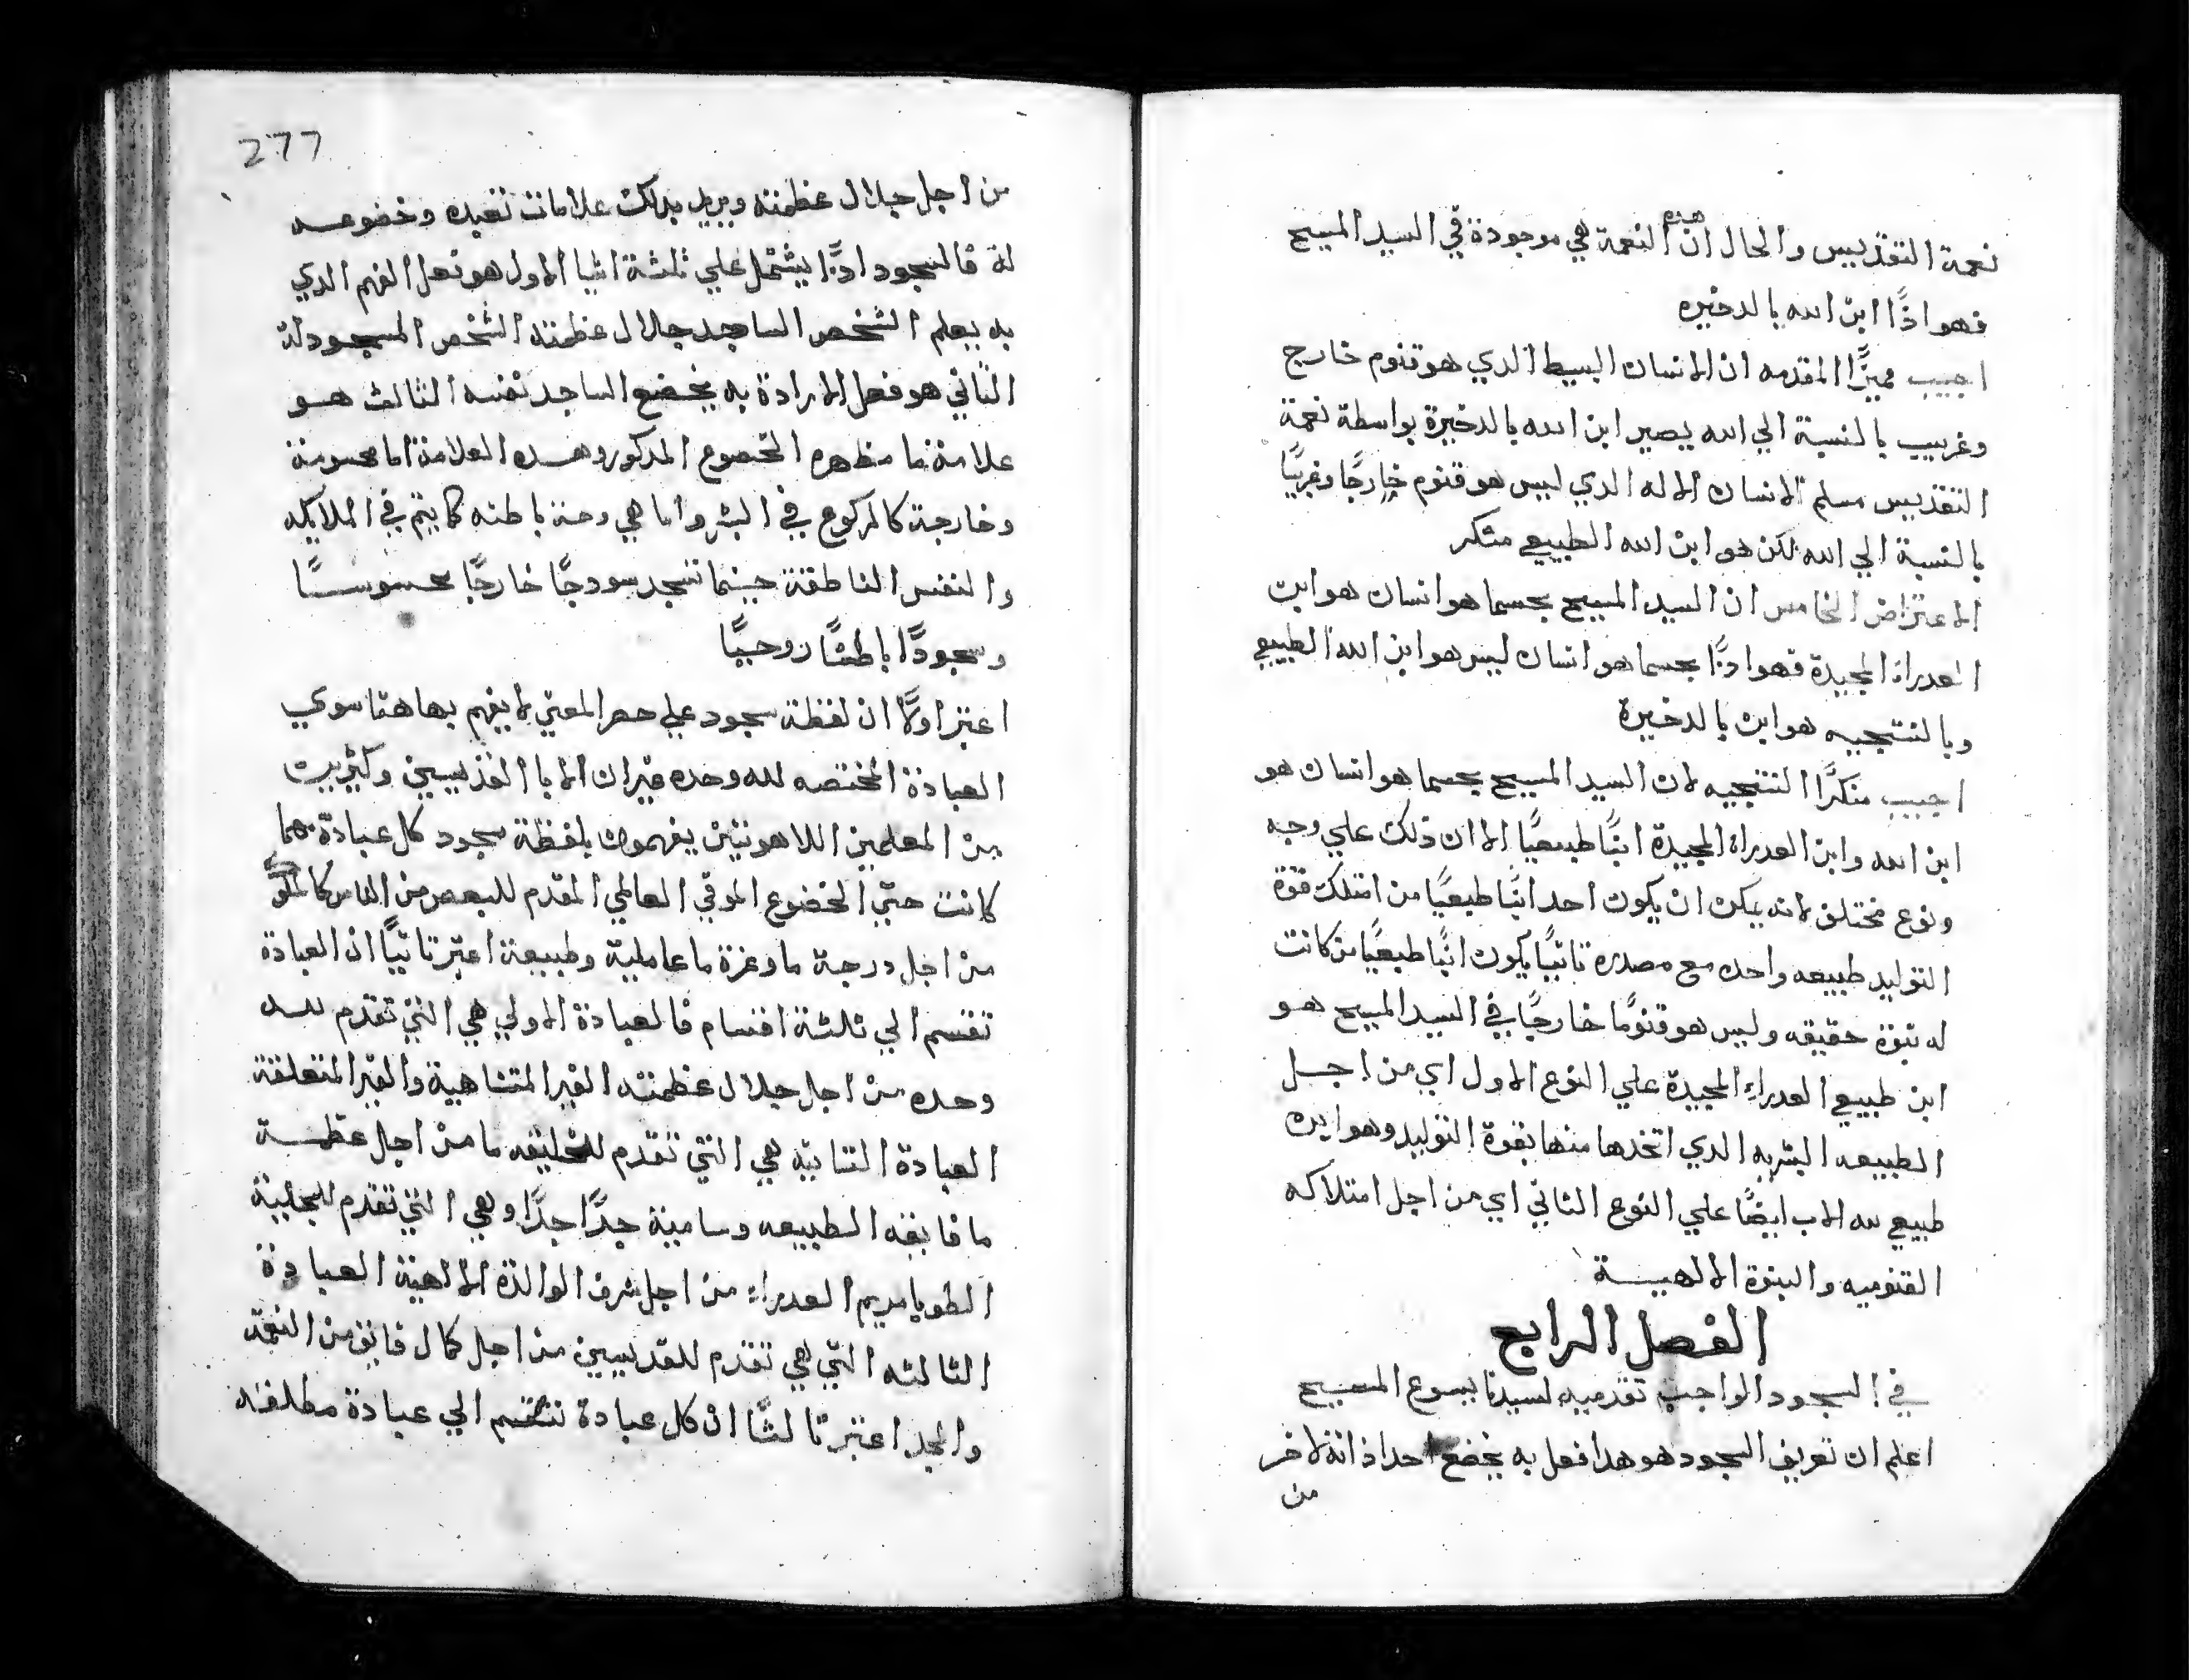 نعمة التقديس والحال ان هذه النعمة هي موجودة في السيد المسيح
فهو اذًا ابن الله بالدخيره
اجيب مميزًا المقدمه ان الانسان البسيط الدي هو قنوم خارج
وغريب بالنسبة الي الله يصير ابن الله بالدخيرة بواسطة نعمة
التقديس مسلم الانسان الاله الدي ليس هو قنوم خارجًا وغريبًا
بالنسبة الي الله لكن هو ابن الله الطبيعي منكر
الاعتراض الخامس ان السيد المسيح بحسما هو انسان هو ابن
العدراة المجيدة فهو ادًا بحسما هو انسان ليس هو ابن الله الطبيعي
وبالنتيجيه هو ابن بالدخيرة
اجيب منكرًا النتيجيه لان السيد المسيح بحسما هو انسان هو
ابن الله وابن العدراة المجيدة ابنًا طبيعيًا الا ان ذلك علي وجه
ونوع مختلف لانه يمكن ان يكون احد ابنًا طبيعيًا من امتلك قوة
التوليد طبيعه واحده مع مصدره ثانيًا يكون ابنًا طبيعيًا من كانت
له بنوة حقيقه وليس هو قنومًا خارجيًا في السيد المسيح هو
ابن طبيعي العدراء المجيدة علي النوع الاول اي من اجل
الطبيعه البشريه الدي اتخدها منها بقوة التوليد وهو ابن
طبيعي لله الاب ايضًا علي النوع الثاني اي من اجل امتلاكه
القنوميه والبنوة الالهية
الفصل الرابع
في السجود الواجب تقدميه لسيدنا يسوع المسيح
اعلم ان تعريف السجود هو هدا فعل به يخضع احد ذاتة لاخر
من
277
من اجل جلال عظمته ويريد بدلك علامات تعبده وخضوعه
له فالسجود ادًا يشتمل علي ثلثة اشيا الاول هو فعل الفهم الدي
به يعلم الشخص الساجد جلال عظمته الشخص المسجود له
الثاني هو فعل الارادة به يخضع الساجد نفسه الثالث هو
علامة ما مظهره الخضوع المدكور وهده العلامة اما محسوسة
وخارجة كالركوع في البشر واما هي وحنة باطنه كما يتم في الملايكه
والنفس الناطقة حينما تسجد سودجًا خارجًا محسوسًا
وسجودًا باطنًا روحيًا
اعتبر اولاً ان لفظة سجود علي حصر المعني لا يفهم بها هنا سوي
العبادة المختصه لله وحده غير ان الابا القديسين وكثيرين
من المعلمين اللاهوتيين يفهمون بلفظة سجود كل عبادة مهما
كانت حتي الخضوع الموقي العالمي المقدم للبعض من الناس كالملوك
من اجل درجة ما وعزة ما عاملية وطبيعة اعتبر ثانيًا ان العبادة
تقسم الي ثلثة اقسام فالعبادة الاولي هي التي تقدم لله
وحده من اجل جلال عظمته الغير المتناهية والغير المتعلقة
العبادة الثانيه هي التي تقدم للخليقه ما من اجل عظمة
ما فايقه الطبيعه وسامية جدًا جدًا وهي التي تقدم للجليلة
الطوبا مريم العدراء من اجل شرف الوالدة الالهية العبادة
الثالثه التي هي تقدم للقديسين من اجل كمال فايق من النعمة
والمجد اعتبر ثالثًا ان كل عبادة تنقسم الي عبادة مطلقه